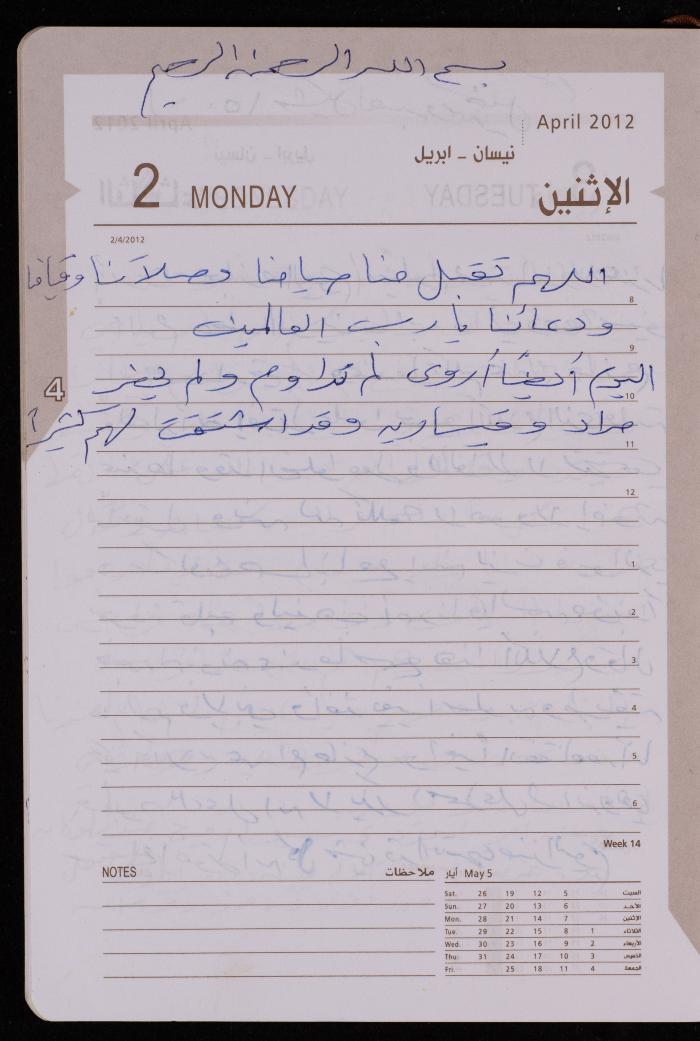 بسم الله الرحمن الرحيم
April 2012
نيسان - ابريل
2 MONDAY الإثنين
2/4/2012
اللهم تقبل منا صيامنا وصلاتنا وقيامنا
8
ودعائنا يا رب العالمين
9
اليوم أيضاً أروى لم تداوم ولم يحضر
10
4
مراد و قيساريه وقد اشتقت لهم كثيراً
11
12
1
2
3
4
5
6
Week 14
NOTES ملاحظات
May 5 أيار
Sat. 26 19 12 5 السبت
Sun. 27 20 13 6 الأحد
Mon. 28 21 14 7 الإثنين
Tue. 29 22 15 8 1 الثلاثاء
Wed. 30 23 16 9 2 الأربعاء
Thu. 31 24 17 10 3 الخميس
Fri. 25 18 11 4 الجمعة